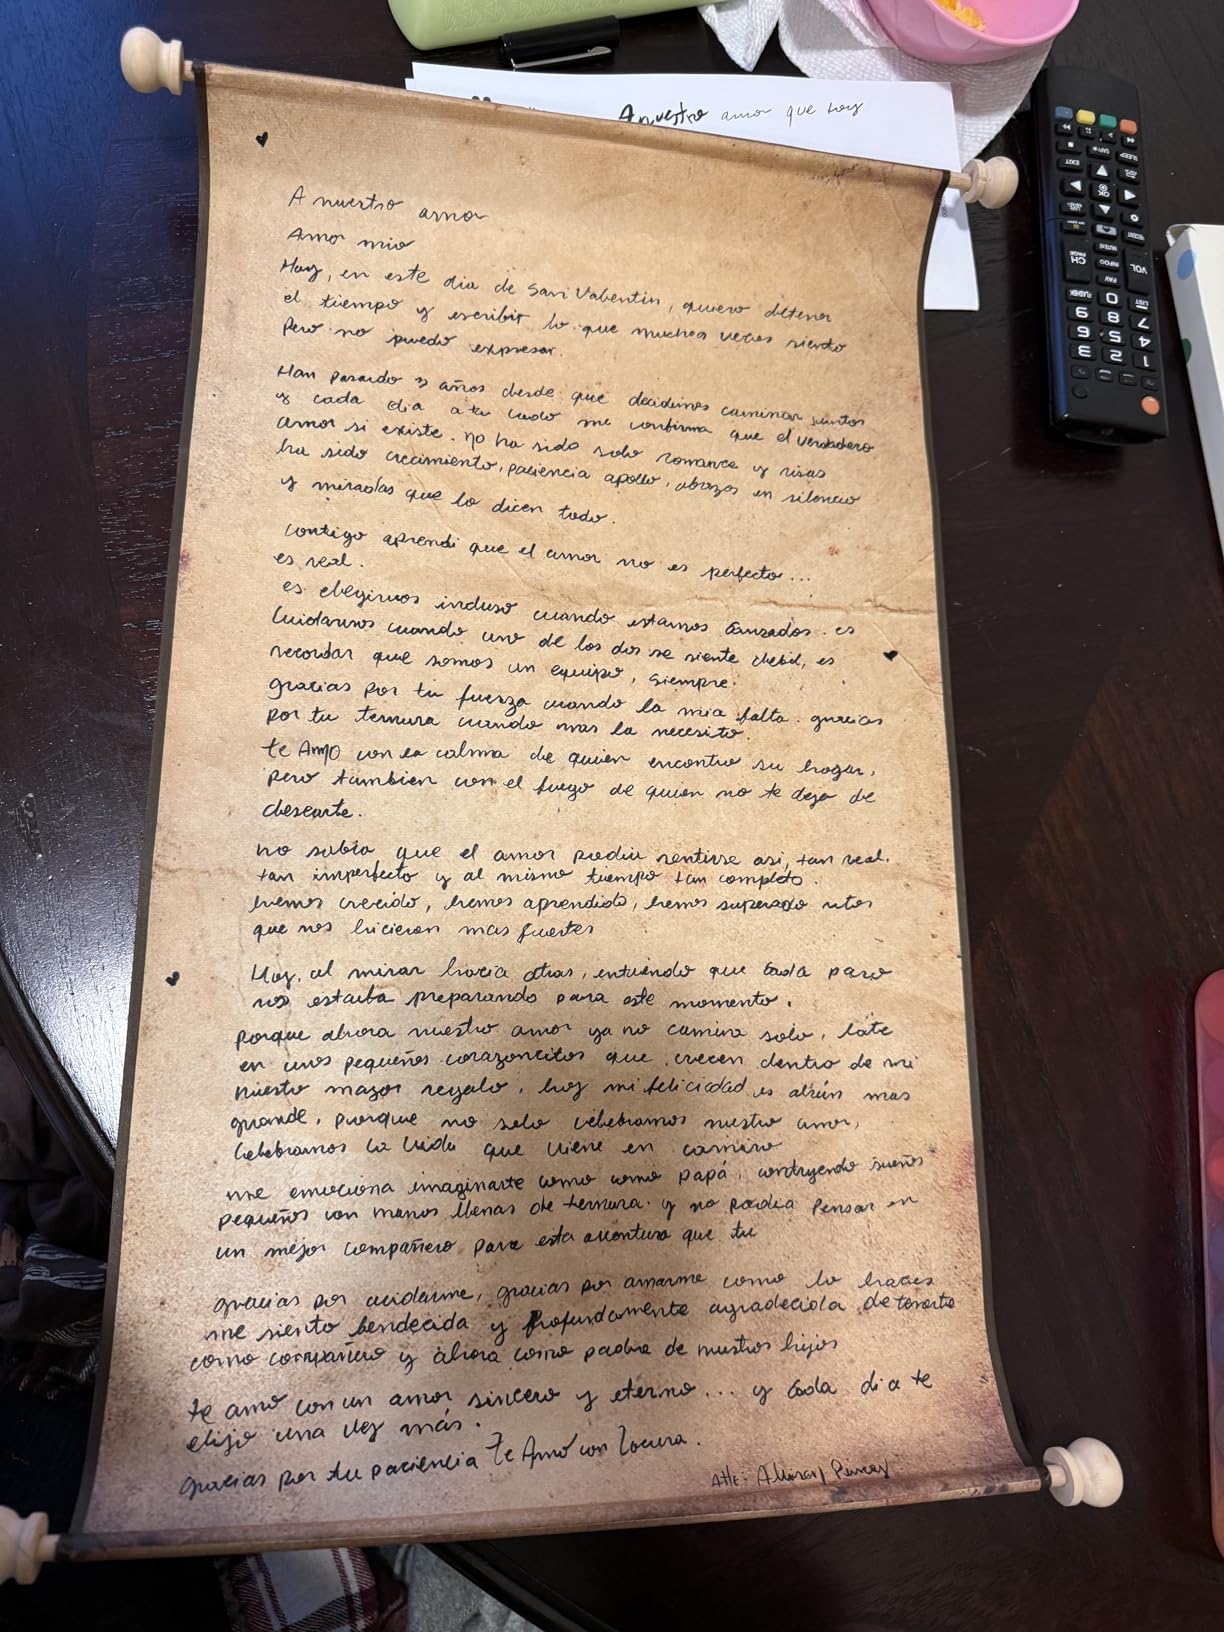 A nuestro amor que hoy
A nuestro amor
Amor mio
Hoy, en este dia de San Valentin, quiero detener
el tiempo y escribir lo que muchas veces siento
Pero no puedo expresar.
Han pasado 3 años desde que decidimos caminar juntos
y cada dia a tu lado me confirma que el verdadero
amor si existe. no ha sido solo romance y risas
ha sido crecimiento, paciencia apollo, abrazos en silencio
y miradas que lo dicen todo.
contigo aprendi que el amor no es perfecto...
es real.
es elegirnos incluso cuando estamos cansados. es
cuidarnos cuando uno de los dos se siente debil, es
recordar que somos un equipo, siempre.
gracias por tu fuerza cuando la mia falta. gracias
por tu ternura cuando mas la necesito.
te Amo con la calma de quien encontro su hogar,
pero tambien con el fuego de quien no te deja de
desearte.
no sabia que el amor podia sentirse asi, tan real.
tan imperfecto y al mismo tiempo tan completo.
hemos crecido, hemos aprendido, hemos superado
que nos hicieron mas fuertes
Hoy, al mirar hacia atras, entiendo que cada paso
nos estaba preparando para este momento.
porque ahora nuestro amor ya no camina solo, late
en unos pequeños corazoncitos que crecen dentro de mi
nuesto mayor regalo, hoy mi felicidad es mas
grande, porque no solo celebramos nuestro amor,
celebramos la vida que viene en camino
me emociona imaginarte como como papá, contruyendo sueños
pequeños con manos llenas de ternura. y no podia pensar en
un mejor compañero para esta aventura que tu
gracias por cuidarme, gracias por amarme como lo haces
me siento bendecida y profundamente agradecida de tenerte
como compañero y ahora como padre de nuestros hijos
te amo con un amor sincero y eterno... y cada dia te
elijo una vez más.
gracias por tu paciencia Te Amo con locura.